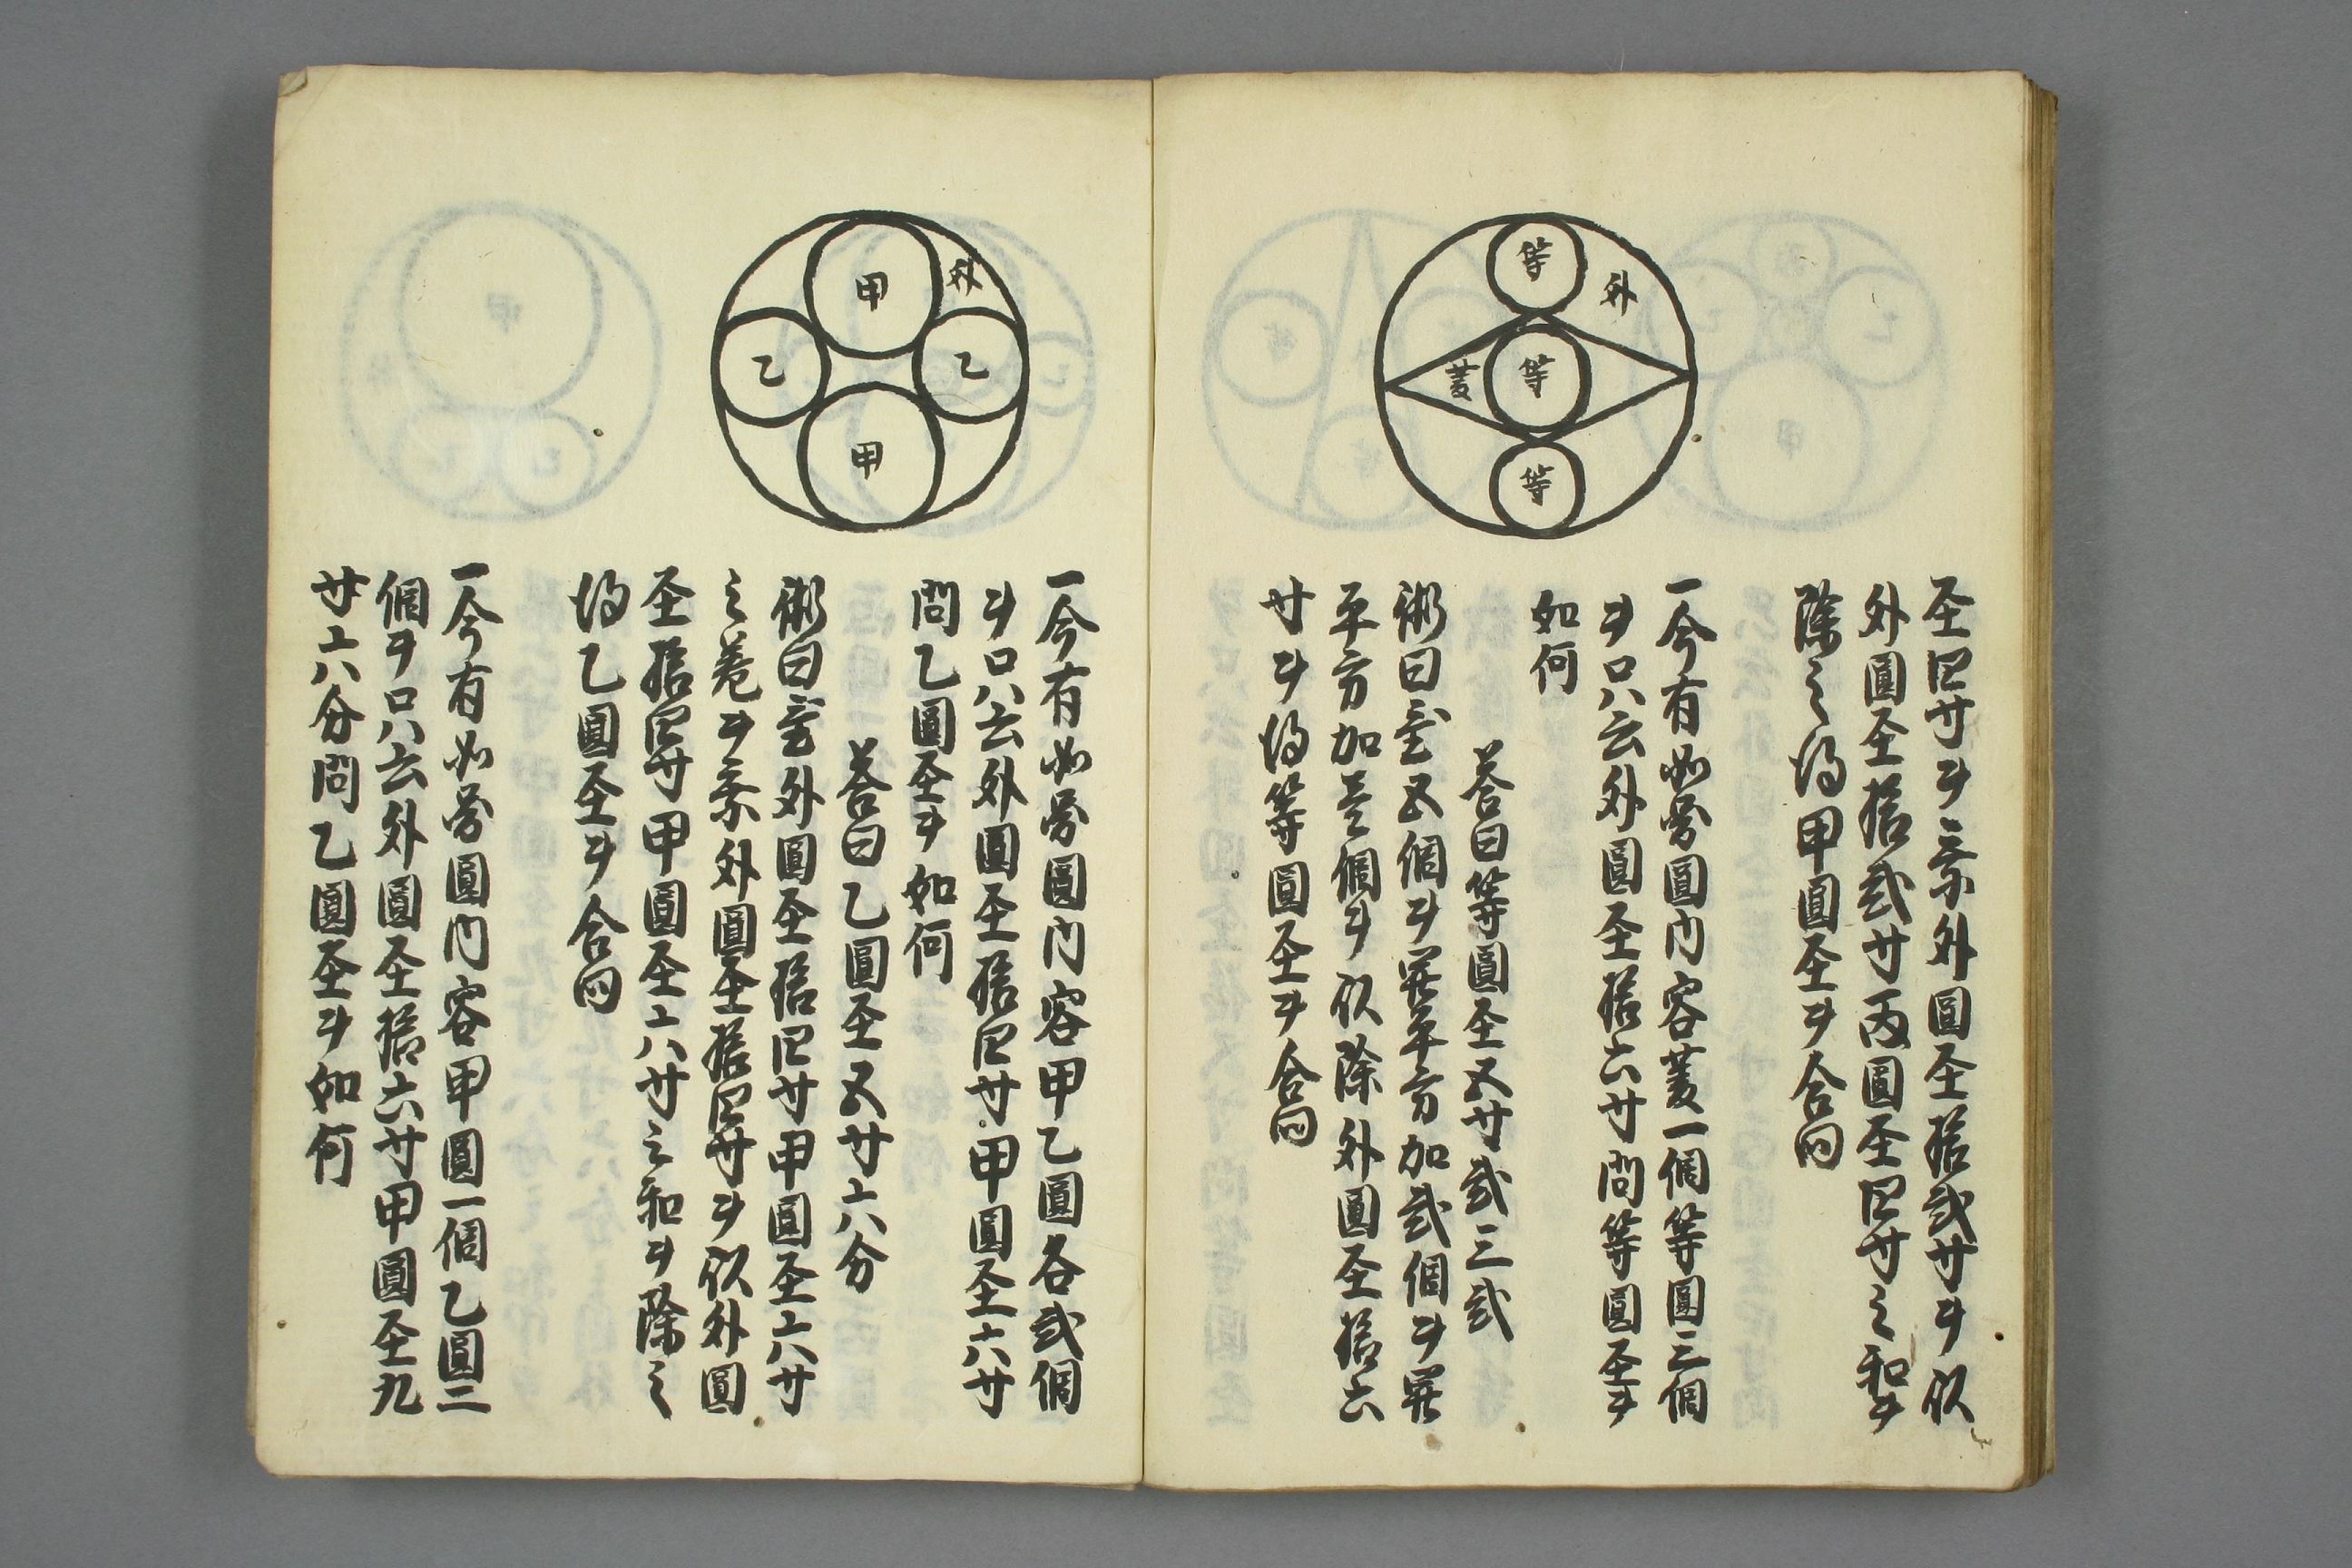 等
外
菱
等
等
圣四寸ヲ乗外圓圣拾弐寸ヲ以
外圓圣拾弐寸丙圓圣四寸之和ヲ
除之得甲圓圣ヲ合問
一今有如圖圓内容菱一個等圓三個
ヲ只云外圓圣拾六寸問等圓圣ヲ
如何
答曰等圓圣五寸弐三弐
術曰置五個ヲ開平方加弐個ヲ開
平方加壱個ヲ以除外圓圣拾六
寸ヲ得等圓圣ヲ合問
甲
外
乙
乙
甲
一今有如圖圓内容甲乙圓各弐個
ヲ只云外圓圣拾四寸甲圓圣六寸
問乙圓圣ヲ如何
答曰乙圓圣五寸六分
術曰置外圓圣拾四寸甲圓圣六寸
之差ヲ乗外圓圣拾四寸ヲ以外圓
圣拾四寸甲圓圣六寸之和ヲ除之
得乙圓圣ヲ合問
一今有如圖圓内容甲圓一個乙圓二
個ヲ只云外圓圣拾六寸甲圓圣九
寸六分問乙圓圣ヲ如何